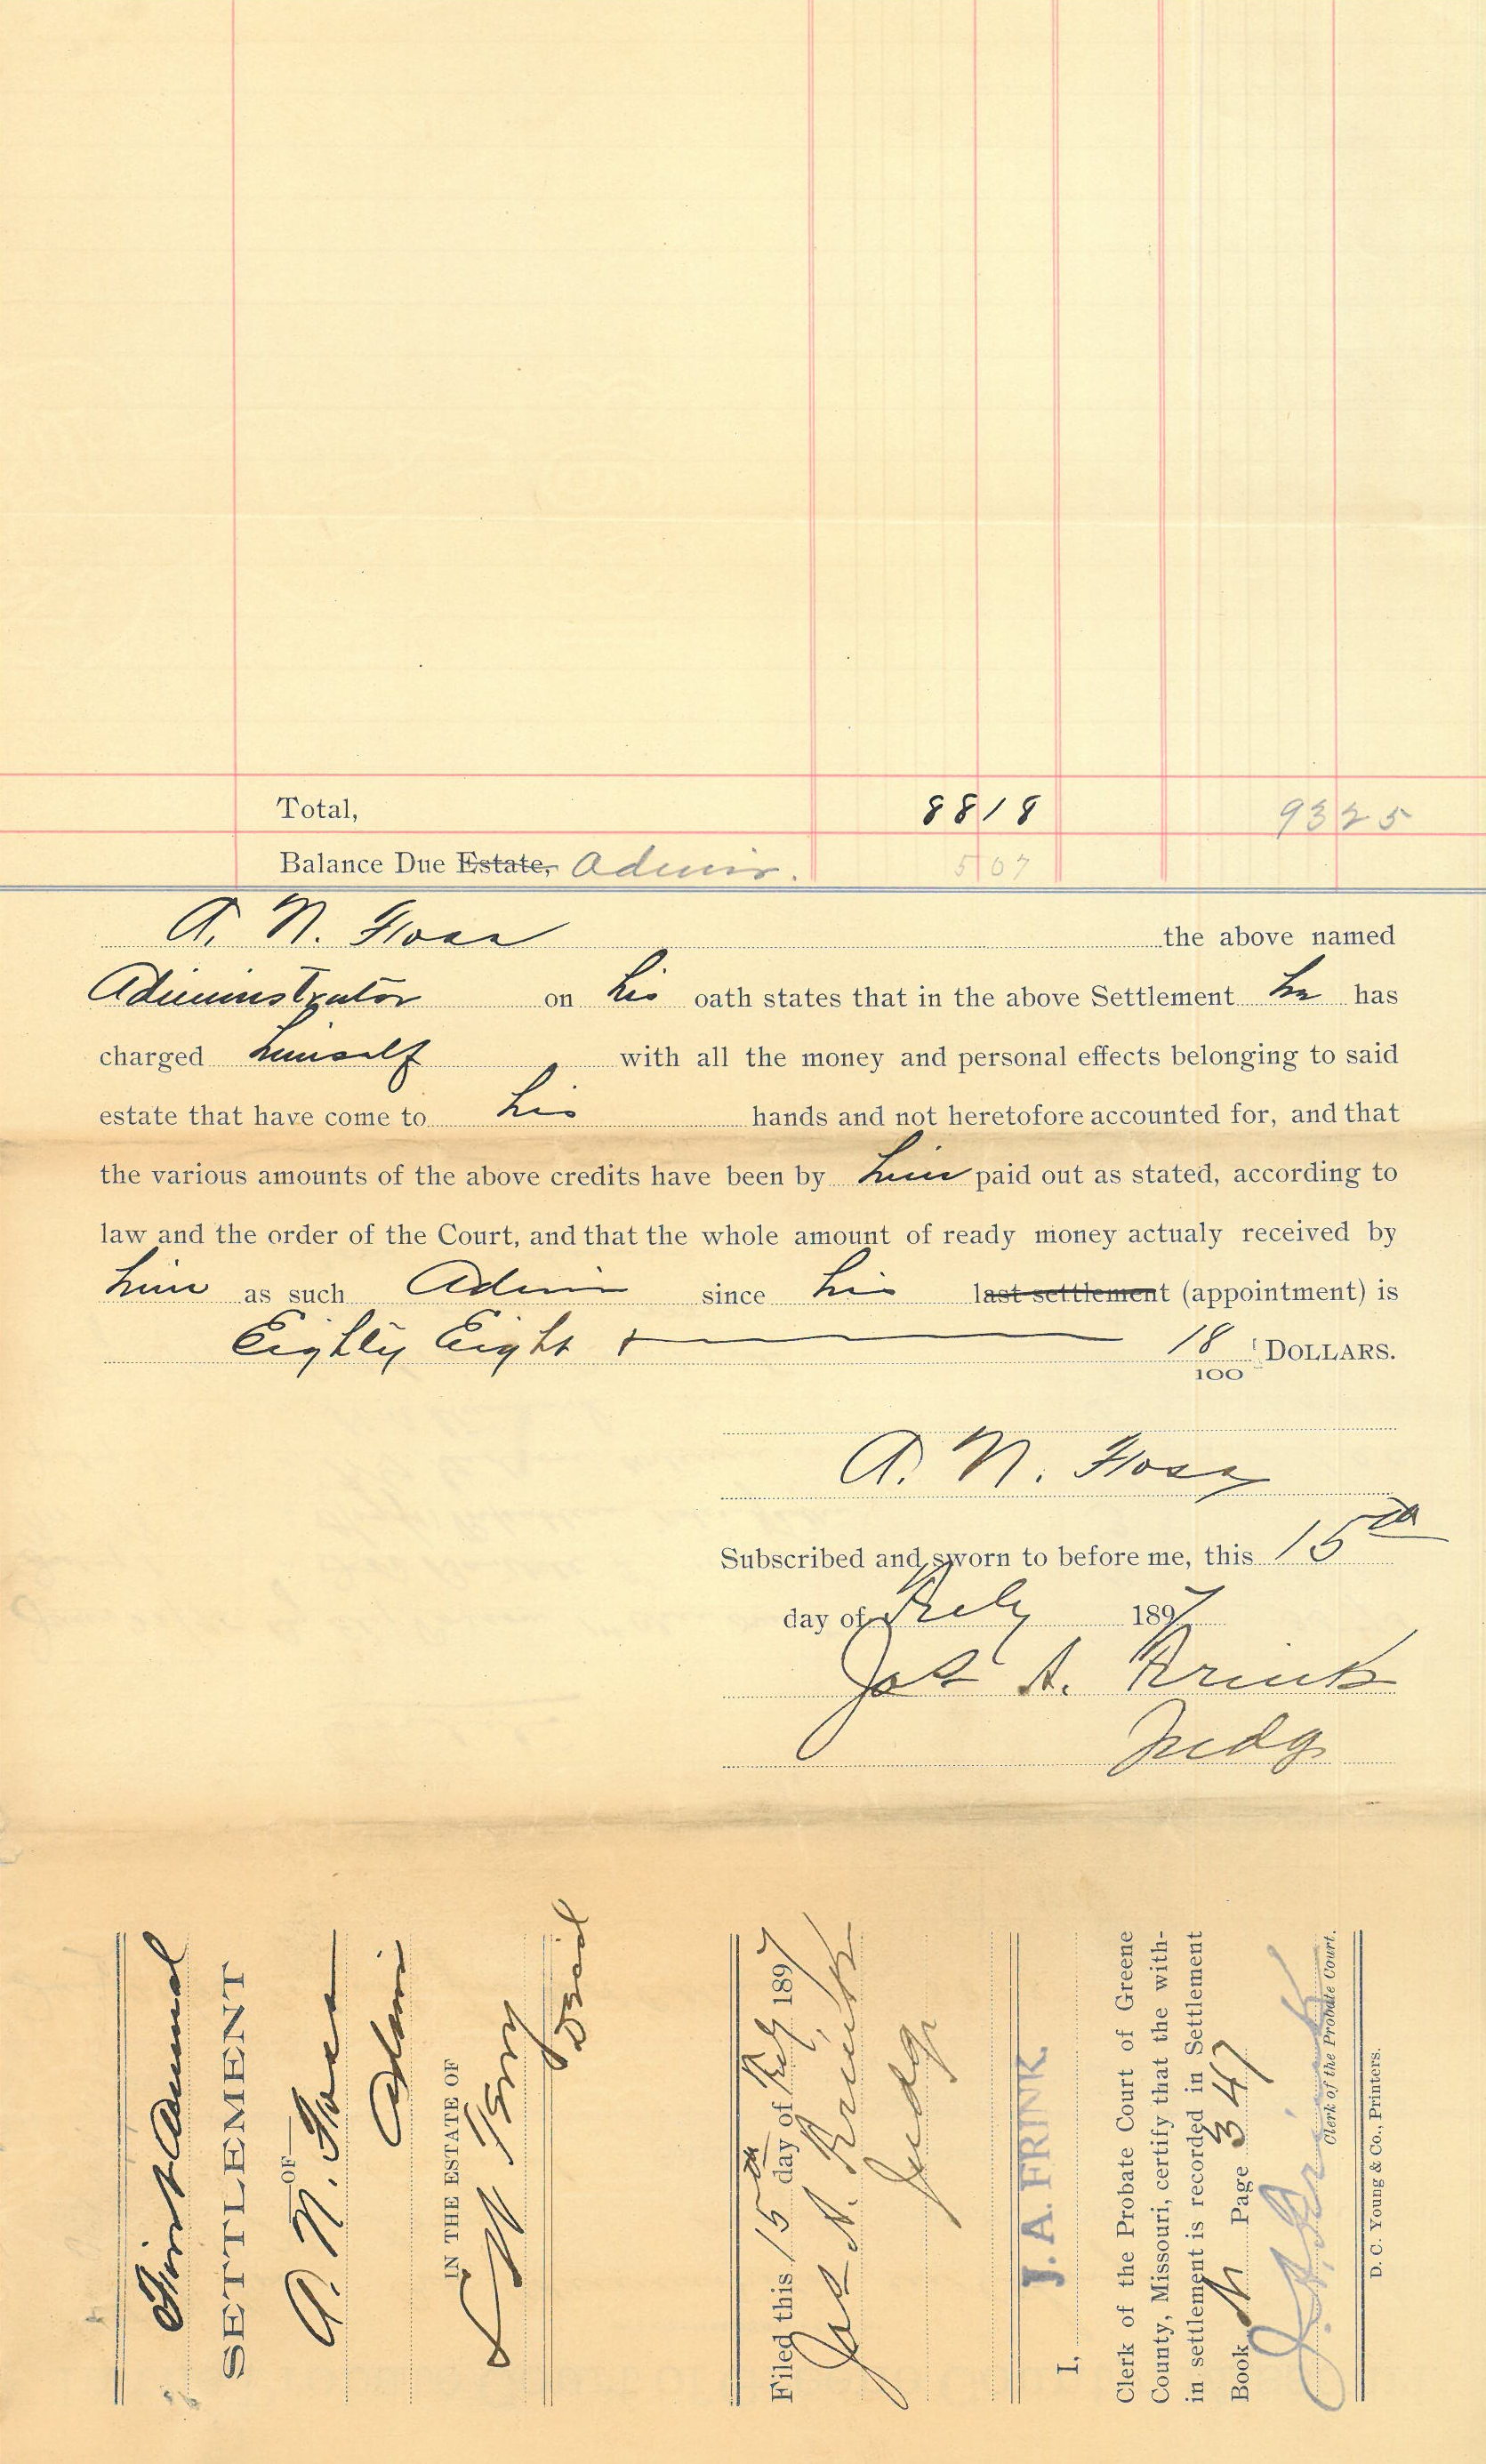 Total, 88 18 93 25
Balance Due Estate, Admr. 5 07
A. N. Foss the above named
Administrator on his oath states that in the above Settlement he has
charged himself with all the money and personal effects belonging to said
estate that have come to his hands and not heretofore accounted for, and that
the various amounts of the above credits have been by him paid out as stated, according to
law and the order of the Court, and that the whole amount of ready money actualy received by
him as such Admr since his last settlement (appointment) is
Eighty Eight + 18/100 DOLLARS.
A. N. Foss
Subscribed and sworn to before me, this 15th
day of July 1897
Jas A. Frink
Judge
First Annual
SETTLEMENT
OF
A. N. Foss
Admr
IN THE ESTATE OF
Terry
Decd
Filed this 15th day of July 1897
Jas A. Frink
Judge
I, J. A. FRINK.
Clerk of the Probate Court of Greene
County, Missouri, certify that the with-
in settlement is recorded in Settlement
Book Page 347
J. A. Frink
Clerk of the Probate Court.
D. C. Young & Co., Printers.